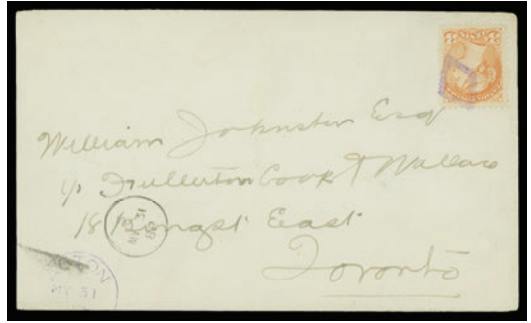 William Johnston Esq
c/o Fullerton Cook & Wallace
18 King St East
Toronto
TON
MY 31